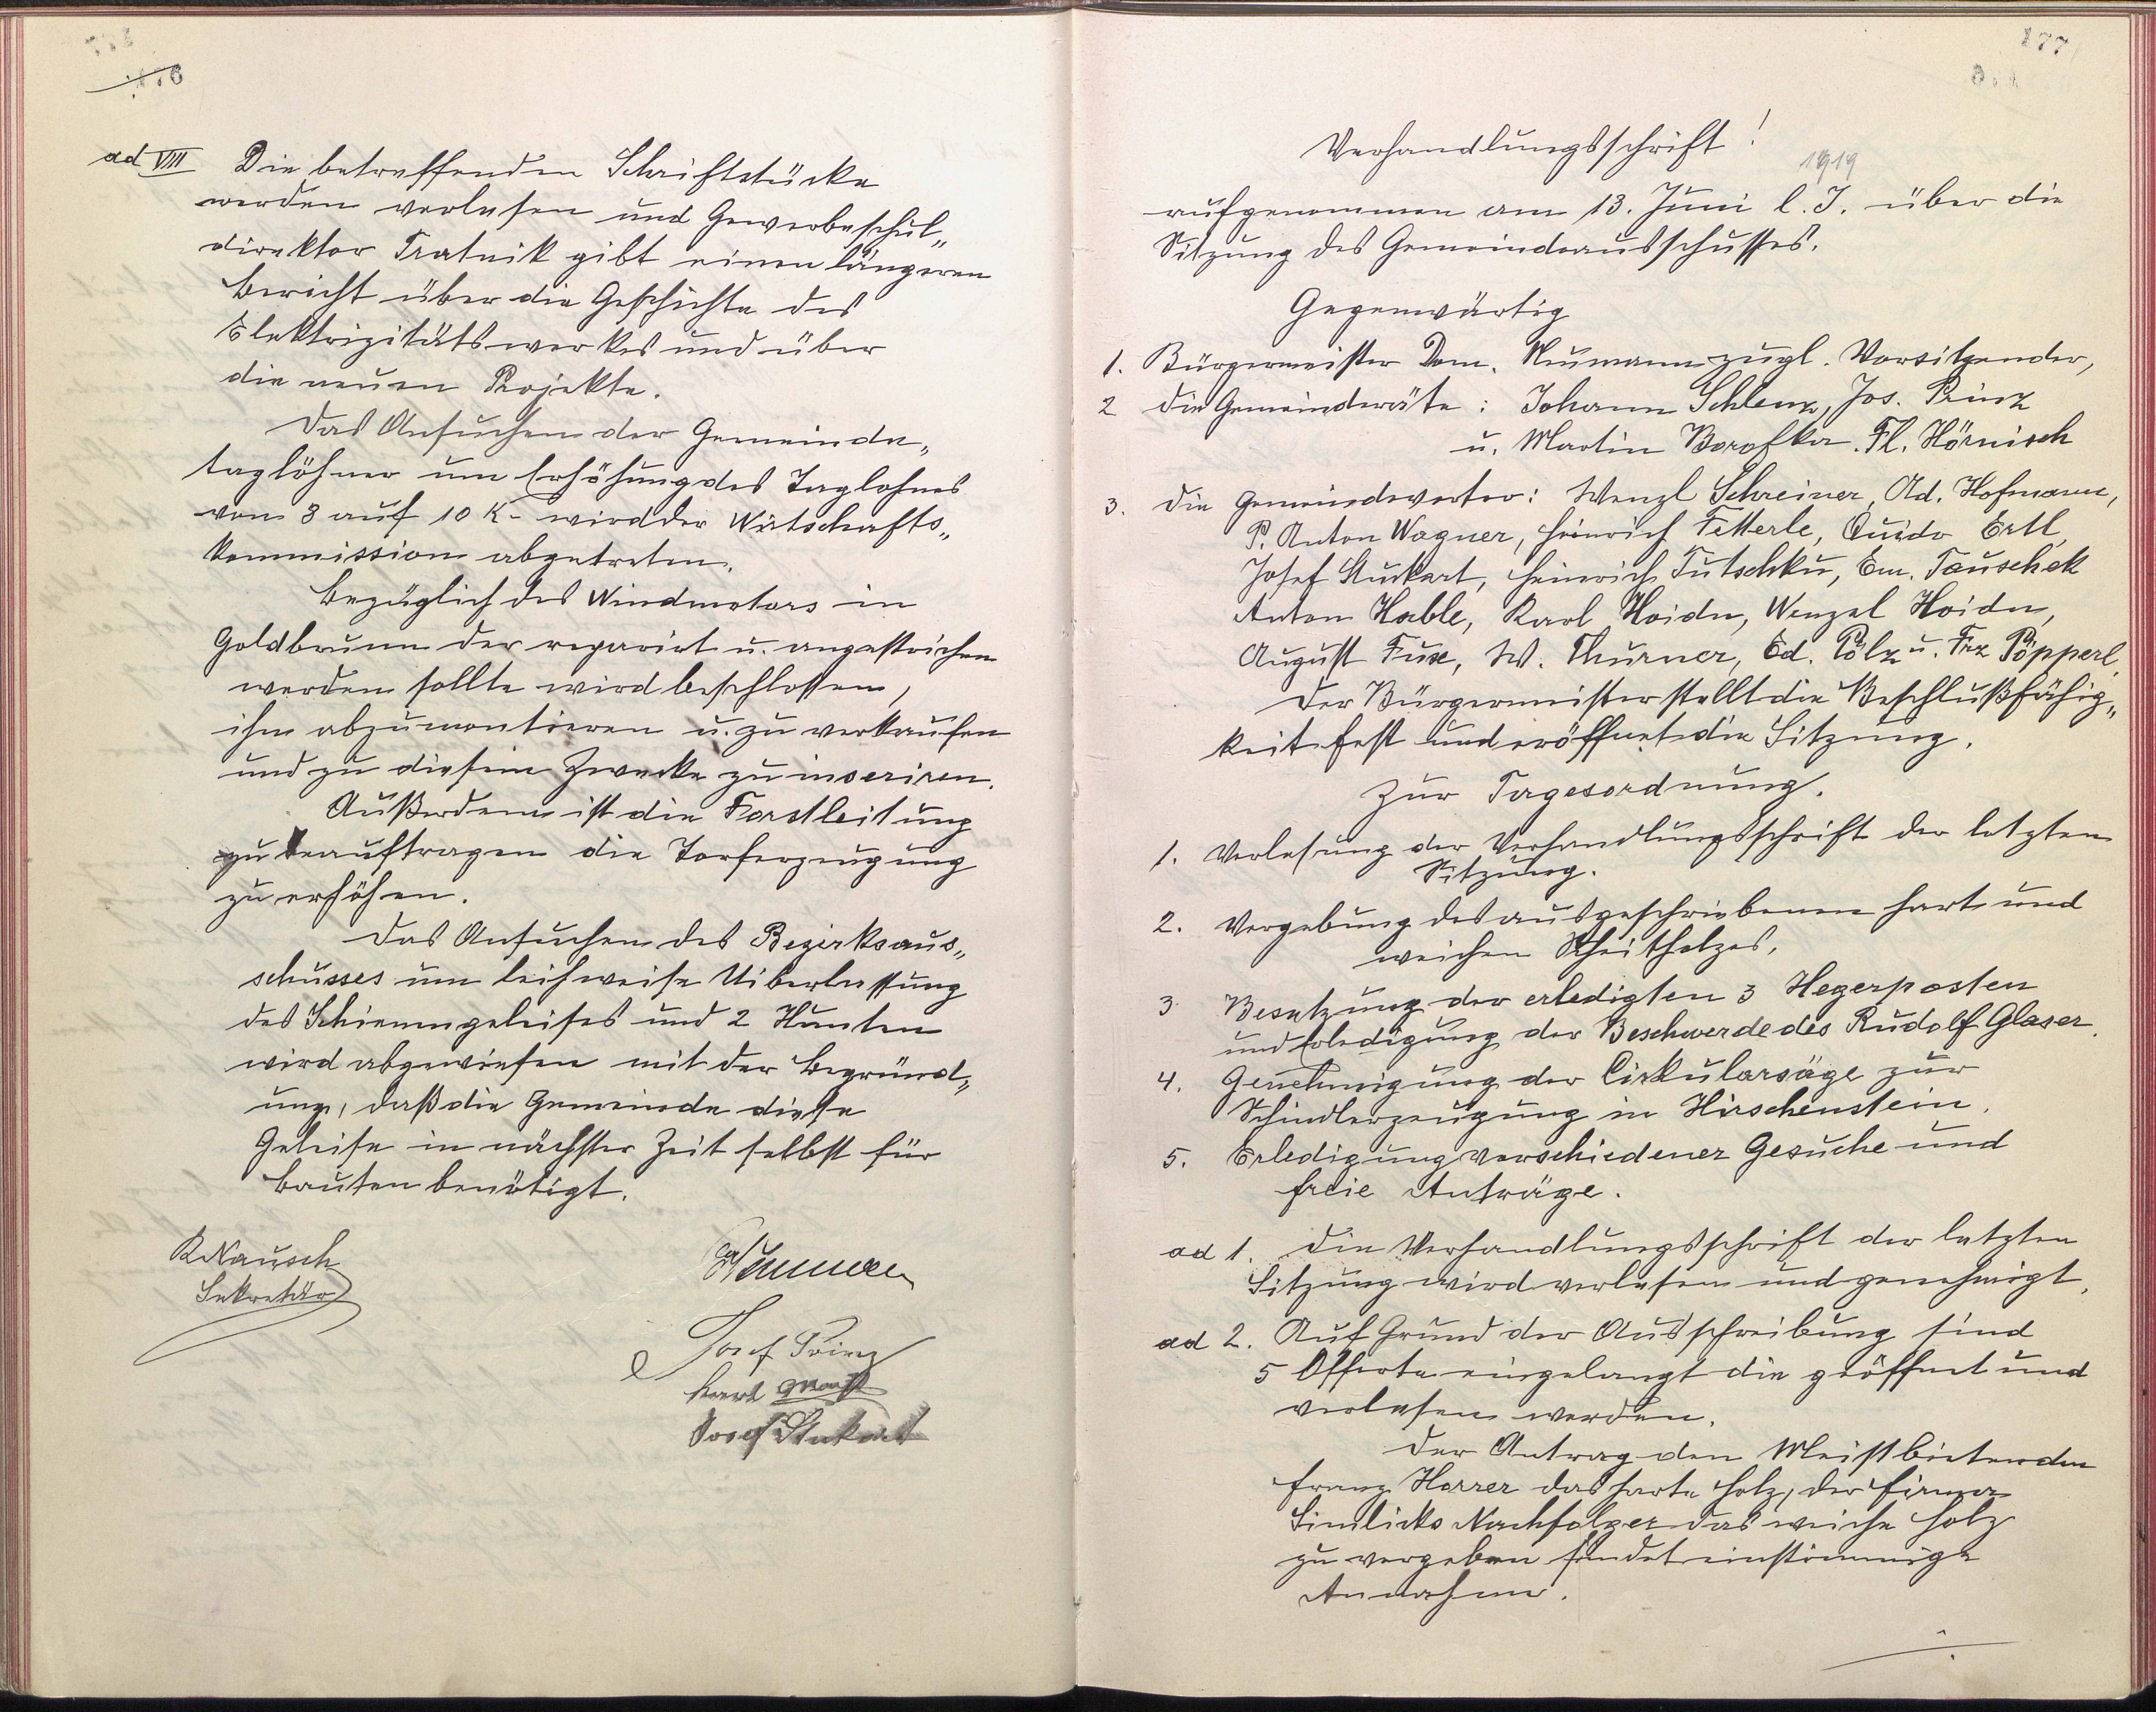 176
ad VIII Die betreffenden Schriftstücke
werden verlesen und Gewerbeschul„
direktor Tratnik gibt einen längeren
Bericht über die Geschichte des
Elektrizitätswerkes und über
die neuen Projekte.
Das Ansuchen der Gemeinde„
taglöhner um Erhöhung des Taglohnes
von 8 auf 10 K- wird der Wirtschafts„
kommission abgetreten.
Bezüglich des Windmotors in
Goldbrunn der reparirt u. angestrichen
werden sollte wird beschlossen,
ihn abzumontieren u. zu verkaufen
und zu diesem Zwecke zu inseriren.
Außerdem ist die Forstleitung
zu beauftragen die Torferzeugung
zu erhöhen.
Das Ansuchen des Bezirksaus„
schusses um leihweise Uiberlassung
des Schienengeleises und 2 Hunten
wird abgewiesen mit der Begründ„
ung, daß die Gemeinde diese
Geleise in nächster Zeit selbst für
Bauten benötigt.
RNausch
Sekretär
Neumann
Josef Prinz
Karl
Josef Stukart
177
Verhandlungsschrift!
1919
aufgenommen am 13. Juni l. J. über die
Sitzung des Gemeindeausschusses.
Gegenwärtig
1. Bürgermeister Dom. Neumann zugl. Vorsitzender,
2 die Gemeinderäte: Johann Schlenz, Jos. Prinz
u. Martin Borofka. Fl. Hörnisch
3. die Gemeindevertor: Wenzl Schreiner, Ad. Hofmann,
P. Anton Wagner, Heinrich Fetterle, Quido Ertl,
Josef Stuckart, Heinrich Tutschku, Em. Tauschek
Anton Hable, Karl Hoidn, Wenzel Hoidn,
August Fuxe, W. Thurner, Ed. Pölz u. Frz Pöpperl,
Der Bürgermeister stellt die Beschlußfähig„
keit fest und eröffnet die Sitzung.
Zur Tagesordnung.
1. Verlesung der Verhandlungsschrift der letzten
Sitzung.
2. Vergebung des ausgeschriebenen hart und
weichen Scheitholzes.
3 Besetzung der erledigten 3 Hegerposten
und Erledigung der Beschwerde des Rudolf Glaser.
4. Genehmigung der Cirkularsäge zur
Schindlerzeugung in Hirschenstein.
5. Erledigung verschiedener Gesuche und
freie Anträge.
ad 1. Die Verhandlungsschrift der letzten
Sitzung wird verlesen und genehmigt.
ad 2. Auf Grund der Ausschreibung sind
5 Offerte eingelangt die geöffnet und
verlesen werden.
Der Antrag den Meistbietenden
Franz Harrer das harte Holz, der Firma
Nachfolger das weiche Holz
zu vergeben findet einstimmige
Annahme.